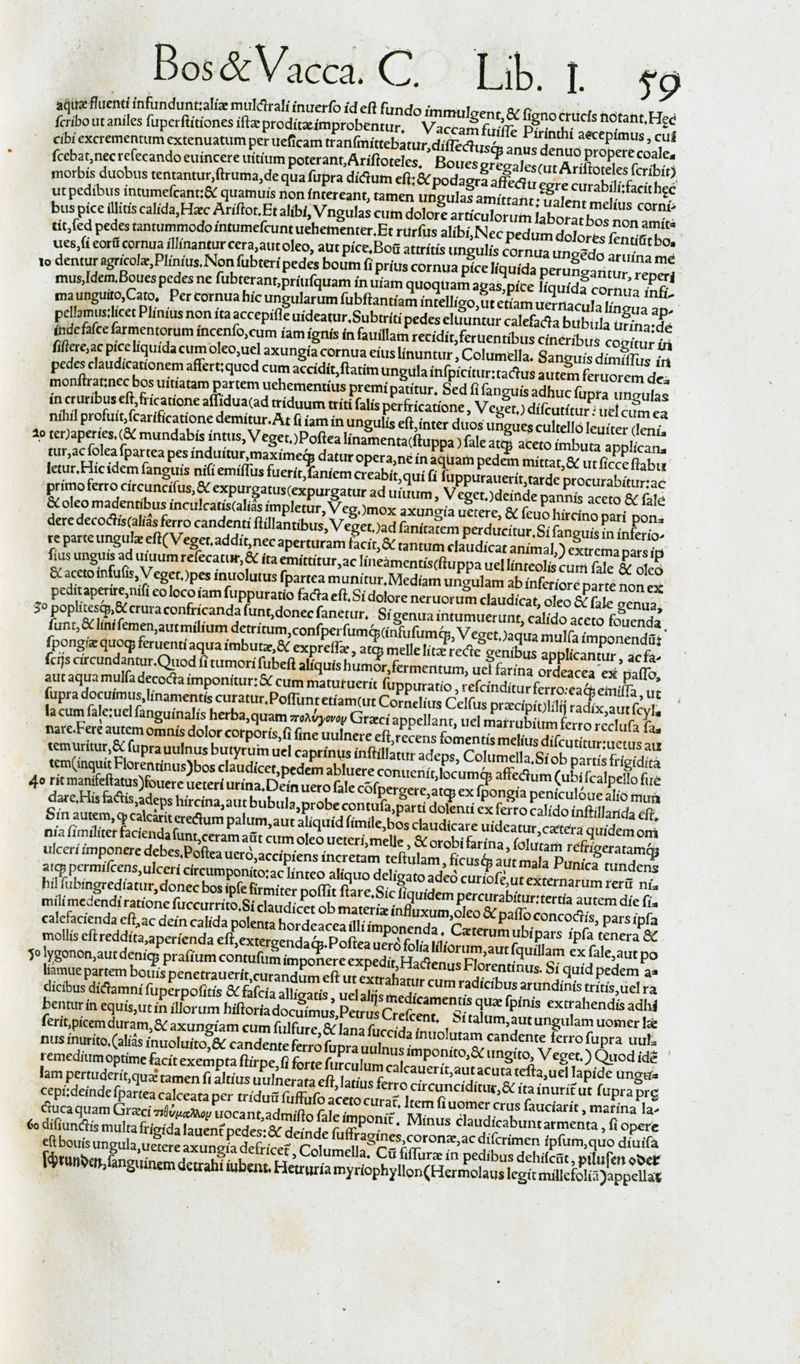 Bos & Vacca. C. Lib. I. 59
aquæ fluenti infundunt: aliæ mulctrali inuerso id est fundo immulgent, & signo crucis notant, Hęc
scribo ut aniles superstitiones istæ proditæ improbentur. Vaccam fuisse Pirinthi aecepimus, cui
cibi excrementum extenuatum per uesicam transmittebatur, dissectusq́ anus denuo propere coale-
scebat, nec resecando euincere uitium poterant, Aristoteles. Boues gregales (ut Aristoteles scribit)
morbis duobus tentantur, struma, de qua supra dictum est: & podagra affectu ęgre curabili: facit hęc
ut pedibus intumescant: & quamuis non intereant, tamen ungulas amittant: ualent melius corni-
bus pice illitis calida, Hæc Aristot. Et alibi, Vngulas cum dolore articulorum laborat bos non amit-
tit, sed pedes tantummodo intumescunt uehementer. Et rursus alibi, Nec pedum dolores sentiũt bo-
ues, si eorũ cornua illinantur cera, aut oleo, aut pice. Boũ attritis ungulis cornua ungẽdo aruina me
10 dentur agricolæ, Plinius. Non subteri pedes boum si prius cornua pice liquida perungantur, reperi
mus, Idem. Boues pedes ne subterant, priusquam in uiam quoquam agas, pice liquida cornua infi-
ma unguito, Cato. Per cornua hic ungularum substantiam intelligo, ut etiam uernacula lingua ap-
pellamus: licet Plinius non ita accepisse uideatur. Subtriti pedes eluuntur calefacta bubula urina: de
inde fasce sarmentorum incenso, cum iam ignis in fauillam recidit, feruentibus cineribus cogitur in
sistere, ac pice liquida cum oleo, uel axungia cornua eius linuntur, Columella. Sanguis dimissus in
pedes claudicationem affert: quod cum accidit, statim ungula inspicitur: tactus autem feruorem de-
monstrat: nec bos uitiatam partem uehementius premi patitur. Sed si sanguis adhuc supra ungulas
in cruribus est, fricatione assidua (ad triduum triti salis perfricatione, Veget.) discutitur: uel cum ea
nihil profuit, scarificatione demitur. At si iam in ungulis est, inter duos ungues cultello leuiter (leni-
20 ter) aperies. (& mundabis intus, Veget.) Postea linamenta (stuppa) sale atq́ aceto imbuta applican-
tur, ac solea spartea pes induitur, maximeq́ datur opera, ne in aquam pedem mittat, & ut sicce stabu
letur. Hic idem sanguis nisi emissus fuerit, saniem creabit, qui si suppurauerit, tarde procurabitur: ac
primo ferro circuncisus, & expurgatus (expurgatur ad uiuum, Veget.) deinde pannis aceto & sale
& oleo madentibus inculcatis (aliâs impletur, Veg.) mox axungia uetere, & seuo hircino pari pon-
dere decoctis (aliâs ferro candenti stillantibus, Veget.) ad sanitatem perducitur. Si sanguis in inferio-
re parte ungulæ est (Veget. addit, nec aperturam facit, & tantum claudicat animal,) extrema pars ip
sius unguis ad uiuum resecatur, & ita emittitur, ac lineamentis (stuppa uel linteolis cum sale & oleo
& aceto infusis, Veget.) pes inuolutus spartea munitur. Mediam ungulam ab inferiore parte non ex
pedit aperire, nisi eo loco iam suppuratio facta est. Si dolore neruorum claudicat, oleo & sale genua,
30 poplitesq́, & crura confricanda sunt, donec sanetur. Si genua intumuerunt, calido aceto fouenda
sunt, & lini semen, aut milium detritum, conspersumq́ (infusumq́, Veget.) aqua mulsa imponendũ:
spongiæ quoq́ feruenti aqua imbutæ, & expressæ, atq́ melle litæ recte genibus applicantur, ac fa-
scijs circundantur. Quod si tumori subest aliquis humor, fermentum, uel farina ordeacea ex passo,
aut aqua mulsa decocta imponitur: & cum maturuerit suppuratio, rescinditur ferro: eaq́ emissa, ut
supra docuimus, linamentis curatur. Possunt etiam (ut Cornelius Celsus præcipit) lilij radix, aut scyl-
la cum sale: uel sanguinalis herba, quam πολύγονον Græci appellant, uel marrubium ferro reclusa sa-
nare. Ferè autem omnis dolor corporis, si sine uulnere est, recens fomentis melius discutitur: uetus au
tem uritur, & supra uulnus butyrum uel caprinus instillatur adeps, Columella. Si ob partis frigiditã
tem (inquit Florentinus) bos claudicet, pedem abluere conuenit, locumq́ affectum (ubi scalpello fue
40 rit manifestatus) fouere ueteri urina. Dein uero sale cõspergere, atq́ ex spongia peniculóue alio mun
dare. His factis, adeps hircina, aut bubula, probe contusa, parti dolenti ex ferro calido instillanda est.
Sin autem, ꝙ calcârit erectum palum, aut aliquid simile, bos claudicare uideatur, cætera quidem om
nia similiter facienda sunt, ceram aũt cum oleo ueteri, melle, & orobi farina, solutam refrigeratamq́
ulceri imponere debes. Postea uerò, accipiens incretam testulam, ficusq́ aut mala Punica tundens
atq́ permiscens, ulceri circumponito: ac linteo aliquo deligato adeò curiosè, ut externarum rerũ ni-
hil subingrediatur, donec bos ipse firmiter possit stare. Sic siquidem percurabitur: tertia autem die si-
mili medendi ratione succurrito. Si claudicet ob materiæ influxum, oleo & passo concoctis, pars ipsa
calefacienda est, ac dein calida polenta hordeacea illi imponenda. Cæterum ubi pars ipsa tenera &
mollis est reddita, aperienda est, extergendaq́. Postea uerò folia liliorum, aut squillam ex sale, aut po
50 lygonon, aut deniq́ prasium contusum imponere expedit, Hactenus Florentinus. Si quid pedem a-
liamue partem bouis penetrauerit, curandum est ut extrahatur cum radicibus arundinis tritis, uel ra
dicibus dictamni superpositis & fascia alligatis, uel alijs medicamentis quæ spinis extrahendis adhi
bentur in equis, ut in illorum historia docuimus, Petrus Crescent. Si talum, aut ungulam uomer læ
serit, picem duram, & axungiam cum sulfure, & lana succida inuolutam candente ferro supra uul-
nus inurito. (aliâs inuoluito, & candente ferro supra uulnus imponito, & ungito, Veget.) Quod idẽ
remedium optime facit exempta stirpe, si forte surculum calcauerit, aut acuta testa, uel lapide ungu-
lam pertuderit, quæ tamen si altius uulnerata est, latius ferro circunciditur, & ita inurit̃ ut supra prę
cepi: deinde spartea calceata per triduũ suffuso aceto curat̃. Item si uomer crus sauciarit, marina la-
ctuca quam Græci πιθύμαλλον uocant, admisto sale imponit̃. Minus claudicabunt armenta, si opere
60 disiunctis multa frigida lauent̃ pedes: & deinde suffragines, coronæ, ac discrimen ipsum, quo diuisa
est bouis ungula, uetere axungia defricet̃, Columella. Cũ fissuræ in pedibus dehiscũt, pilusen oder
schrunden, sanguinem detrahi iubent. Hetruria myriophyllon (Hermolaus legit millefoliã) appellat